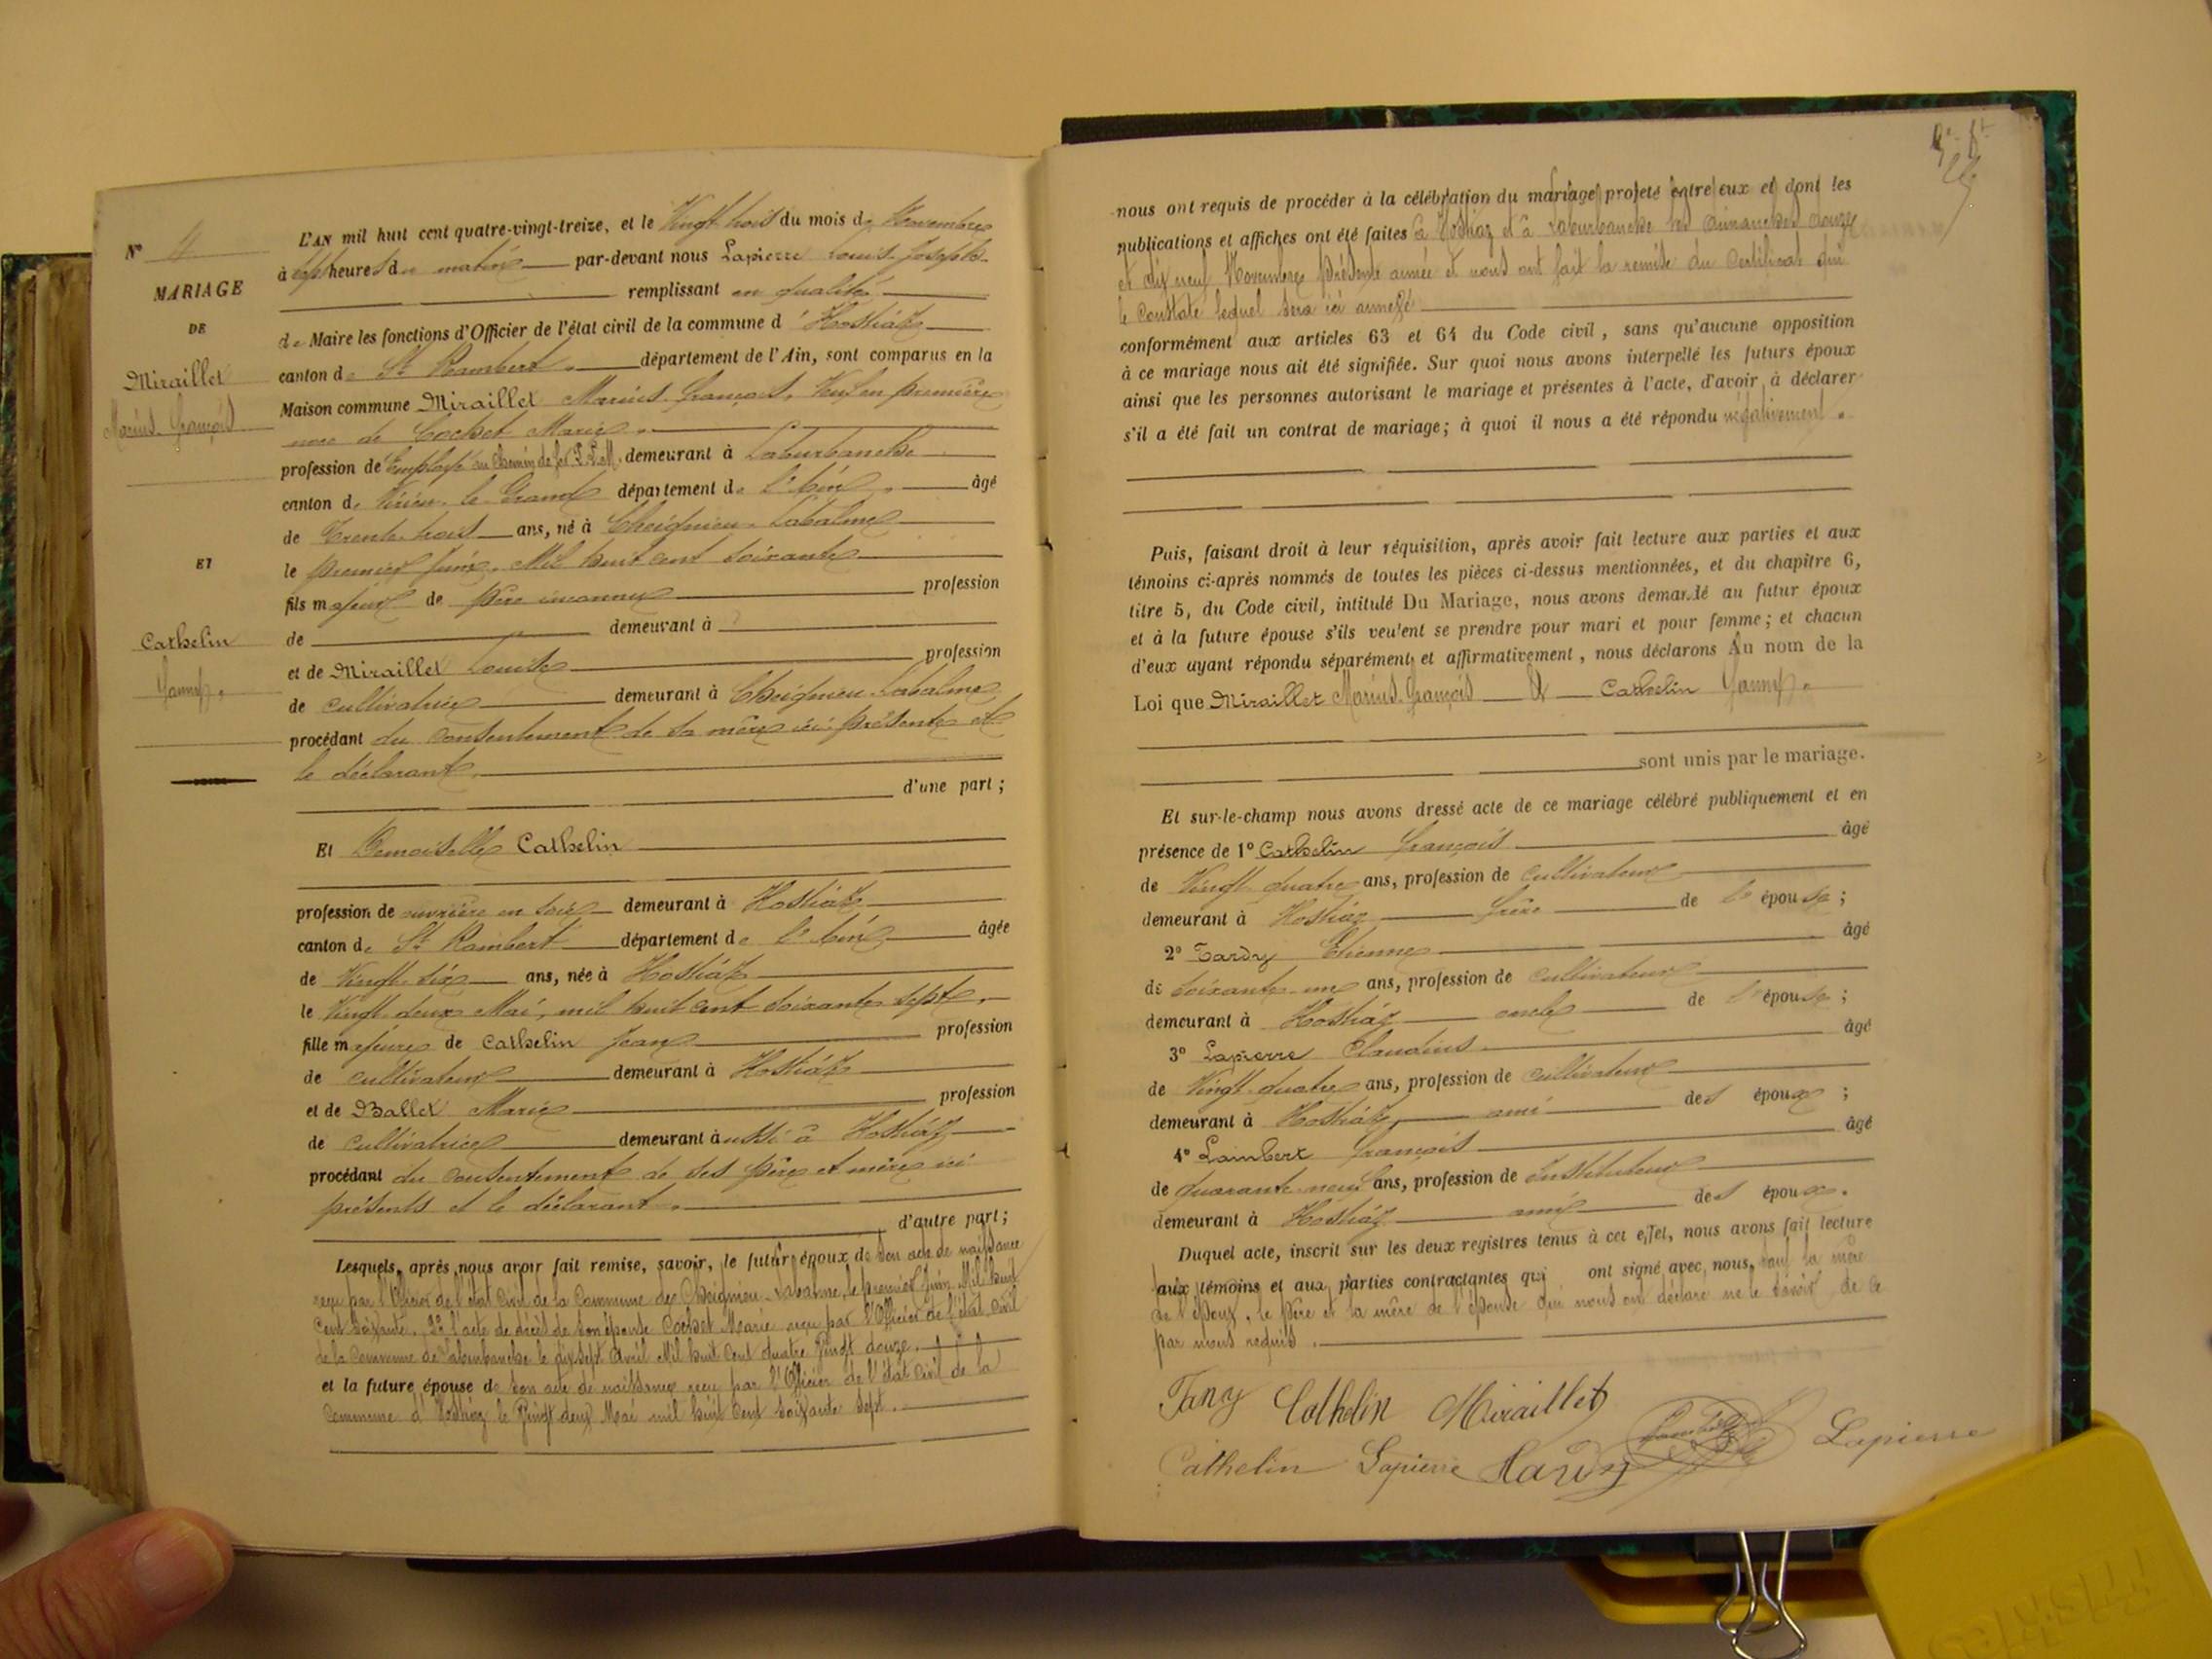 N° 4
MARIAGE
DE
Miraillet
Marius François
ET
Cathelin
Fanny.
L'AN mil huit cent quatre-vingt-treize, et le Vingt trois du mois de Novembre
à sept heures du matin par-devant nous Lapierre Louis Joseph
remplissant en qualité
de Maire les fonctions d'Officier de l'état civil de la commune d'Hostiáz
canton de St Rambert. département de l'Ain, sont comparus en la
Maison commune Miraillet Marius François, Veuf en première
noce de Cochet Marie.
profession de Employé au chemin de fer P.L.M. demeurant à Laburbanche
canton de Virieu-le-Grand département de l'Ain. âgé
de Trente-trois ans, né à Cheignieu-Labalme
le premier Juin, Mil huit cent soixante
fils majeur de père inconnu profession
de demeurant à
et de Miraillet Louise profession
de cultivatrice demeurant à Cheignieu-Labalme
procédant du consentement de sa mère ici présente et
le déclarant.
d'une part;
Et Demoiselle Cathelin
profession de ouvrière en soie demeurant à Hostiáz
canton de St Rambert département de l'Ain âgée
de Vingt-six ans, née à Hostiáz
le Vingt-deux Mai, mil huit cent soixante sept.
fille majeure de Cathelin Jean profession
de cultivateur demeurant à Hostiáz
et de Ballet Marie profession
de cultivatrice demeurant aussi à Hostiáz
procédant du consentement de ses père et mère ici
présents et le déclarant.
d'autre part;
Lesquels, après nous avoir fait remise, savoir, le futur époux de son acte de naissance
reçu par l'Officier de l'état civil de la Commune de Cheignieu-Labalme, le premier Juin Mil huit
Cent soixante. 2° l'acte de décès de son épouse Cochet Marie reçu par l'Officier de l'état civil
de la Commune de Laburbanche le dix sept Avril Mil huit Cent quatre Vingt douze.
et la future épouse de son acte de naissance reçu par l'Officier de l'état civil de la
Commune d'Hostiaz le Vingt deux Mai mil huit Cent soixante sept.
nous ont requis de procéder à la célébration du mariage projeté entre eux et dont les
publications et affiches ont été faites à Hostiaz et à Laburbanche les dimanches douze
et dix neuf Novembre présente année et nous ont fait la remise du Certificat qui
le Constate lequel sera ici annexé
conformément aux articles 63 et 64 du Code civil, sans qu'aucune opposition
à ce mariage nous ait été signifiée. Sur quoi nous avons interpellé les futurs époux
ainsi que les personnes autorisant le mariage et présentes à l'acte, d'avoir à déclarer
s'il a été fait un contrat de mariage; à quoi il nous a été répondu négativement.
Puis, faisant droit à leur réquisition, après avoir fait lecture aux parties et aux
témoins ci-après nommés de toutes les pièces ci-dessus mentionnées, et du chapitre 6,
titre 5, du Code civil, intitulé Du Mariage, nous avons demandé au futur époux
et à la future épouse s'ils veulent se prendre pour mari et pour femme; et chacun
d'eux ayant répondu séparément et affirmativement, nous déclarons Au nom de la
Loi que Miraillet Marius François & Cathelin Fanny.
sont unis par le mariage.
Et sur-le-champ nous avons dressé acte de ce mariage célébré publiquement et en
présence de 1° Cathelin François âgé
de Vingt quatre ans, profession de cultivateur
demeurant à Hostiaz frère de l'épouse;
2° Tardy Etienne âgé
de soixante-un ans, profession de cultivateur
demeurant à Hostiáz oncle de l'épouse;
3° Lapierre Claudius âgé
de Vingt quatre ans, profession de cultivateur
demeurant à Hostiáz ami des époux;
4° Lambert François âgé
de quarante neuf ans, profession de Instituteur
demeurant à Hostiáz ami des époux.
Duquel acte, inscrit sur les deux registres tenus à cet effet, nous avons fait lecture
aux témoins et aux parties contractantes qui ont signé avec nous, sauf la mère
de l'époux, le père et la mère de l'épouse qui nous ont déclaré ne le savoir de ce
par nous requis.
Fany Cathelin Miraillet
Cathelin Lapierre Tardy Lambert Lapierre